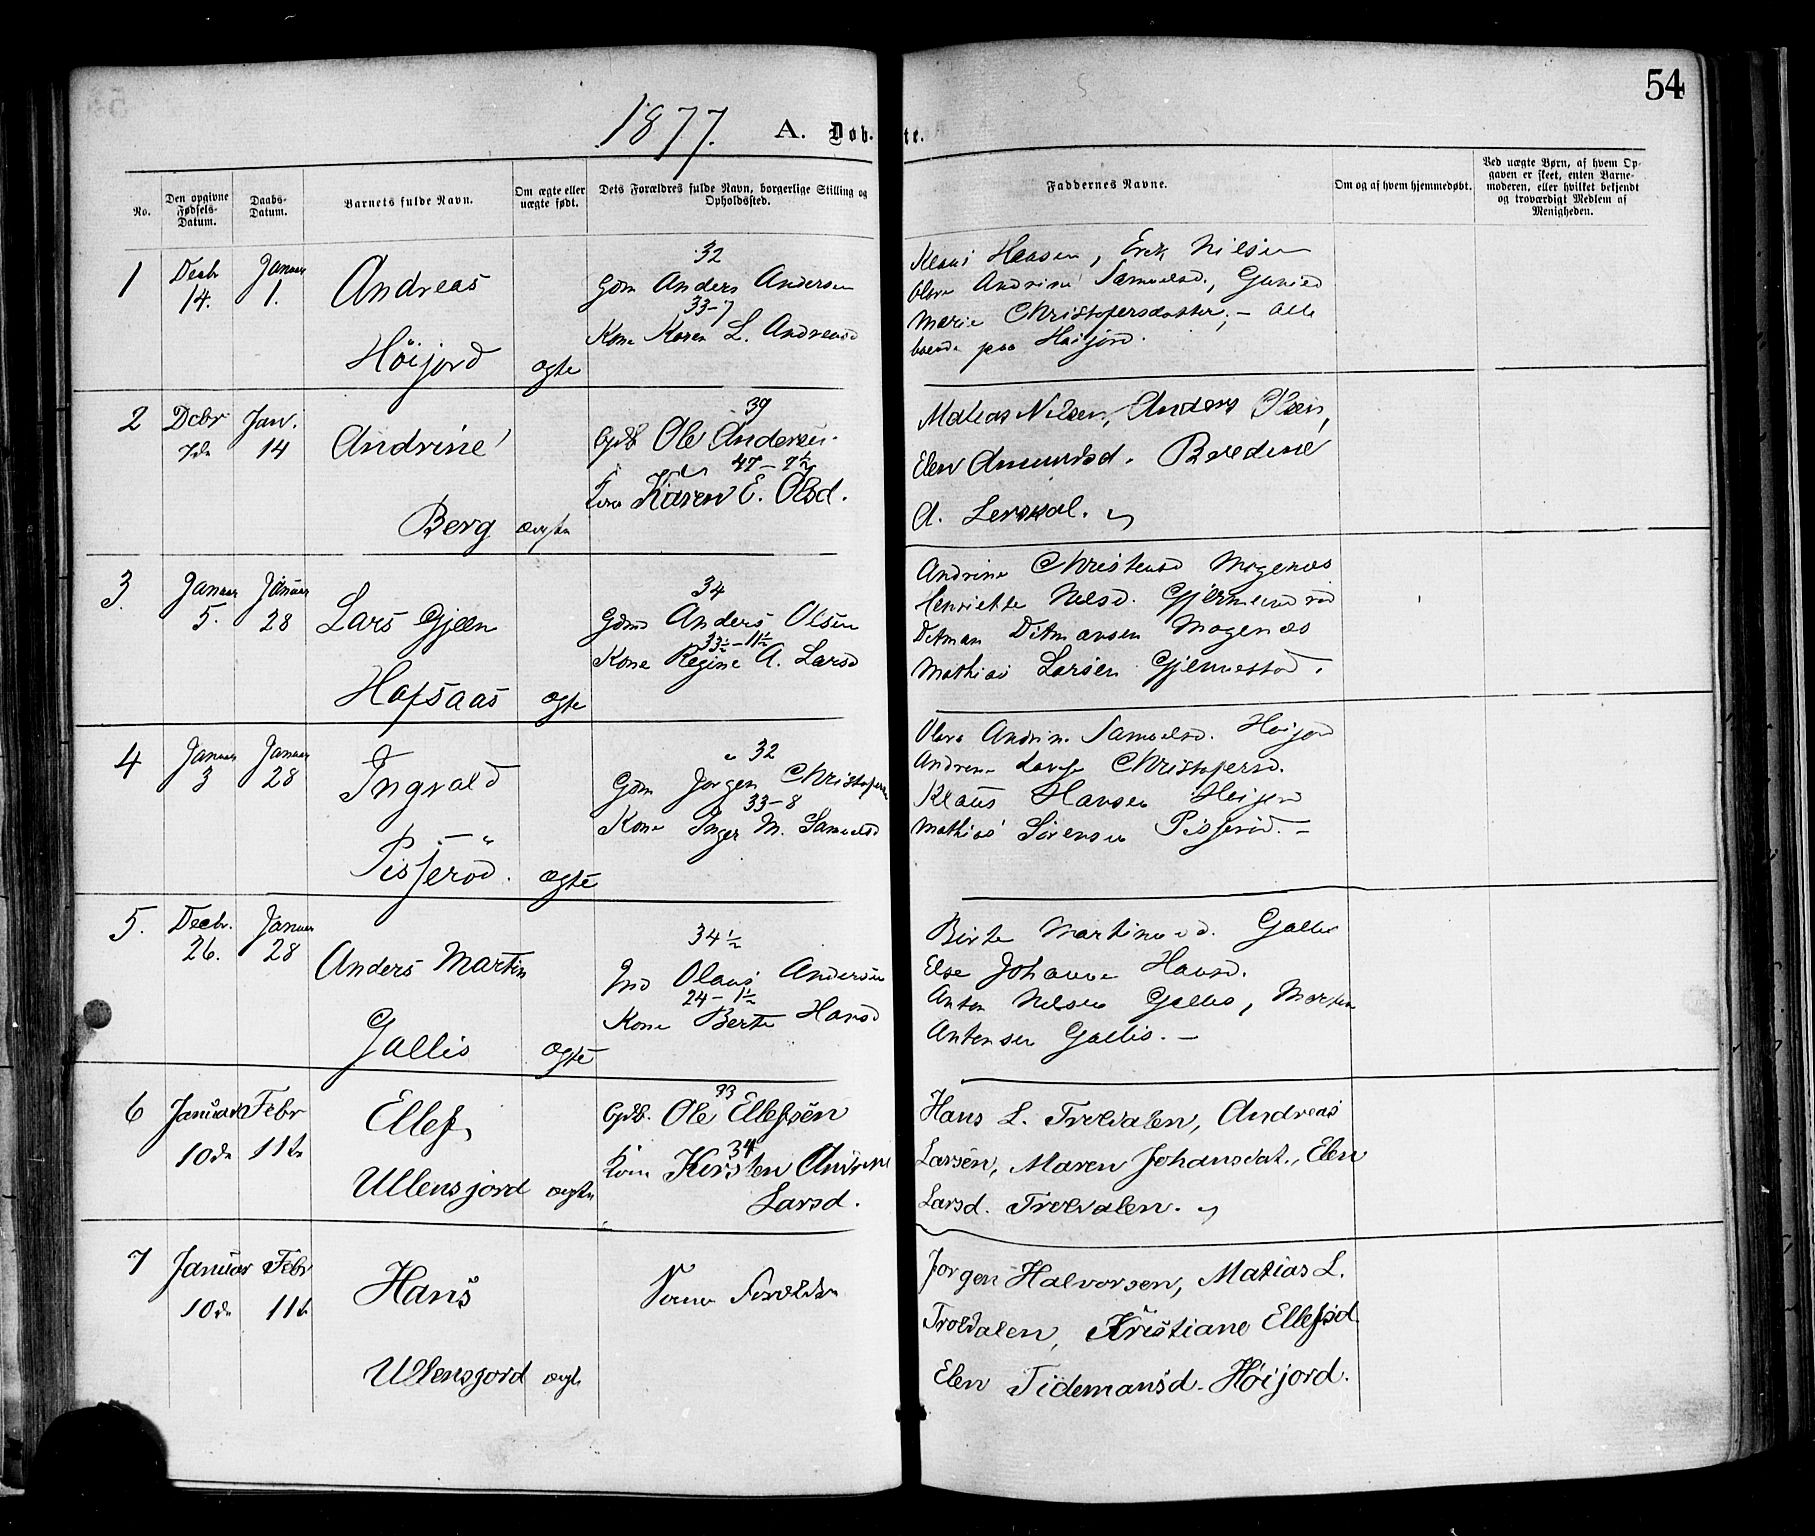 54
1877. A. Døb-te.
No.
Den opgivne Fødsels-Datum.
Daabs-Datum.
Barnets fulde Navn.
Om ægte eller uægte født.
Dets Forældres fulde Navn, borgerlige Stilling og Opholdssted.
Faddernes Navne.
Om og af hvem hjemmedøbt.
Ved uægte Børn, af hvem Opgaven er skeet, enten Barnemoderen, eller hvilket bekjendt og troværdigt Medlem af Menigheden.
1
Decbr 14.
Januar 1.
Andreas
Høijord
ægte
32
Gdm Anders Andersen
33-7
Kone Karen L. Andreasd
Klaus Hansen, Erik Nilsen
Olava Andrine Samuelsd.,
Marie Christofersdatter, – Alle
boende paa Høijord.
2
Decbr 7de
Jan. 14
Andrine
Berg
ægte
39
Gdb. Ole Andersen
47-7½
Kone Karen E. Olsd.
Matias Nilsen, Anders Olsen,
Elen Amundsd. Bredine
A. Lerskal.
3.
Januar 5.
Januar 28
Lars Gjeen
Hafsaas
ægte
34
Gdm Anders Olsen
33½-11½
Kone Regine A. Larsd
Andrine Christensd Mogenæs
Henriette Nelsd. Gjermundrød
Ditman Ditmansen Mogenæs
Mathias Larsen Gjennestad.
4
Januar 3
Januar 28
Ingvald
Pisserød.
ægte
32
Gdm Jørgen Christofersen
33-8
Kone Inger M. Samuelsd
Olava Andrine Samuelsd. Høijord
Andrine Christofersd.
Klaus Hansen Høijord
Mathias Sørensen Pisserød. –
5.
Decbr. 26.
Januar 28
Anders Martin
Gallis
ægte
34½
Ind Olaus Andersen
24-1½
Kone Berte Hansd
Birte Martinsd. Gallis
Else Johanne Hansd.
Anton Nelsen Gallis, Martin
Antonsen Gallis. –
6
Januar 10de
Febr 11te
Ellef,
Ullensjord
ægte
33
Gdb. Ole Ellefsen
34
Kone Kirsten Andrine
Larsd.
Hans L. Troldalen, Andreas
Larsen, Maren Johansdat., Elen
Larsd. Troldalen.
7
Januar 10de
Febr 11te
Hans
Ullensjord
ægte
Jørgen Halvorsen, Matias L.
Troldalen, Kristiane Ellefsd.
Elen Tidemansd. Høijord.